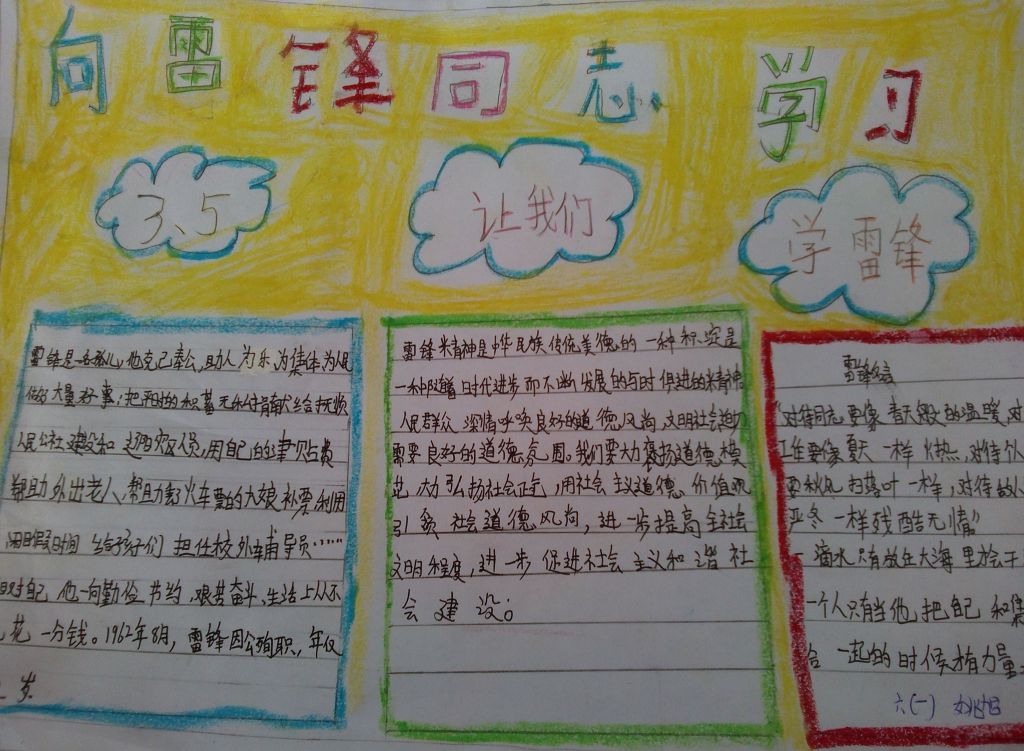 向雷锋同志学习
3、5
让我们
学雷锋
雷锋是一名孤儿,他克己奉公,助人为乐为集体为人民
做好大量好事:把平时的积蓄无私付贡献给抚顺
人民公社建设和辽阳灾区人员,用自己的津贴费
帮助外出老人、帮助丢火车票的大娘补票,利用
闲日假时间给孩子们担任校外辅导员……
对自己他一向勤俭节约、艰苦奋斗、生活上从不
花一分钱。1962年8月,雷锋因公殉职,年仅
岁
雷锋精神是中华民族传统美德的一种积淀是
一种随着时代进步而不断发展的与时俱进的精神
人民群众深情呼唤良好的道德风尚,文明社会迫切
需要良好的道德氛围。我们要大力褒扬道德模
范,大力弘扬社会正气,用社会主义道德价值观
引领社会道德风尚,进一步提高全社会
文明程度,进一步促进社会主义和谐社
会建设。
雷锋名言
“对待同志要像春天般的温暖,对
工作要像夏天一样火热,对待个人
要秋风扫落叶一样,对待敌人
严冬一样残酷无情”
一滴水只有放在大海里才会干
一个人只有当他把自己和集
合一起的时候才有力量
六(一)